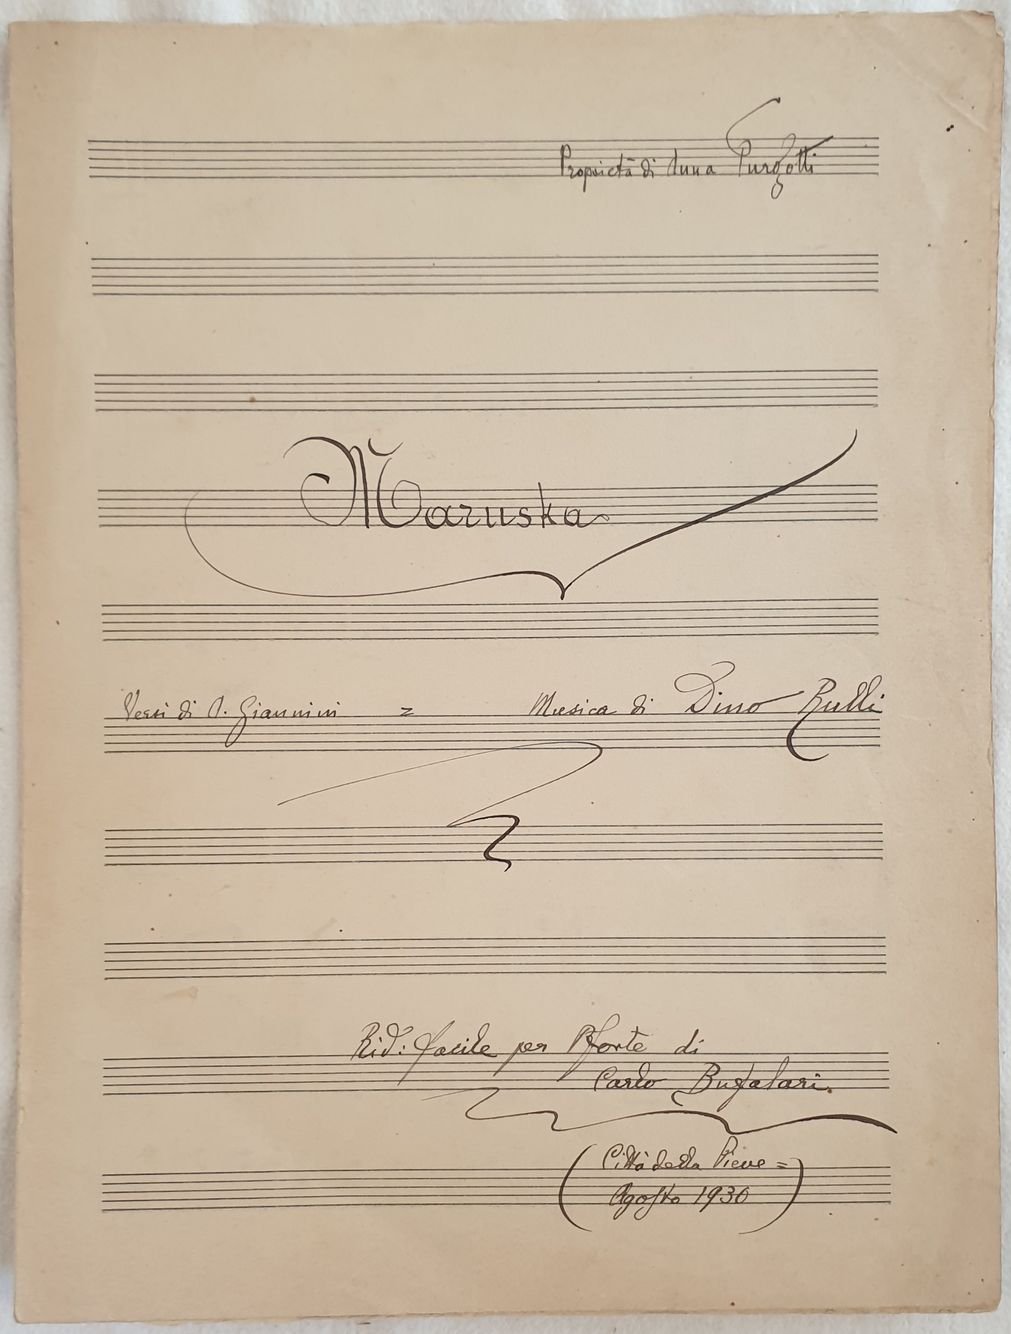 Proprietà di Anna Purgotti
Maruska
Versi di A. Giannini = Musica di Dino Rulli
Rid: facile per Pforte di
Carlo Bugalari.
(Città della Pieve =
Agosto 1930)